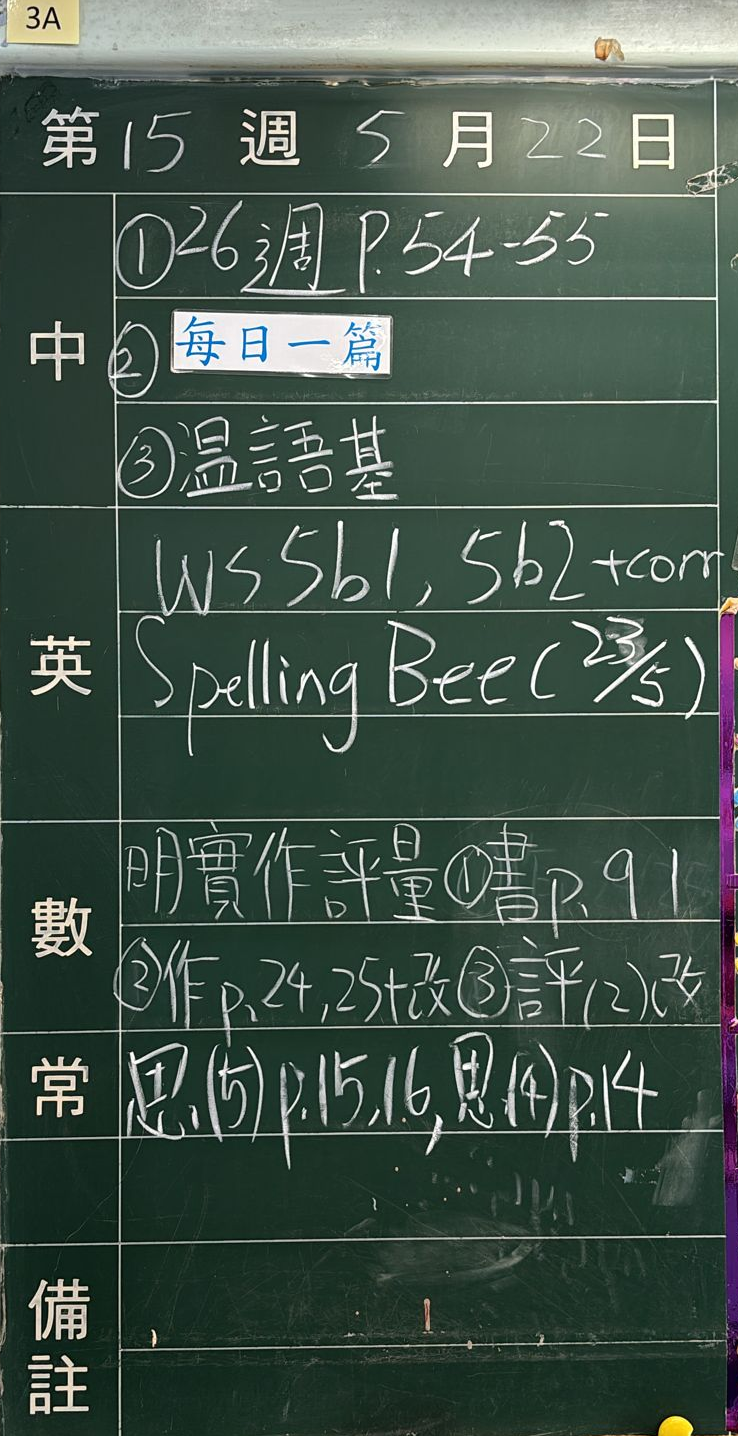 3A
第15週 5月22日
中
①26週 P.54-55
② 每日一篇
③温語基
英
WS 5b1, 5b2 +corr
Spelling Bee (23/5)
數
明實作評量①書p.91
②作p.24,25+改③評(2)改
常
思.(5)p.15,16,思.(4)p.14
備註